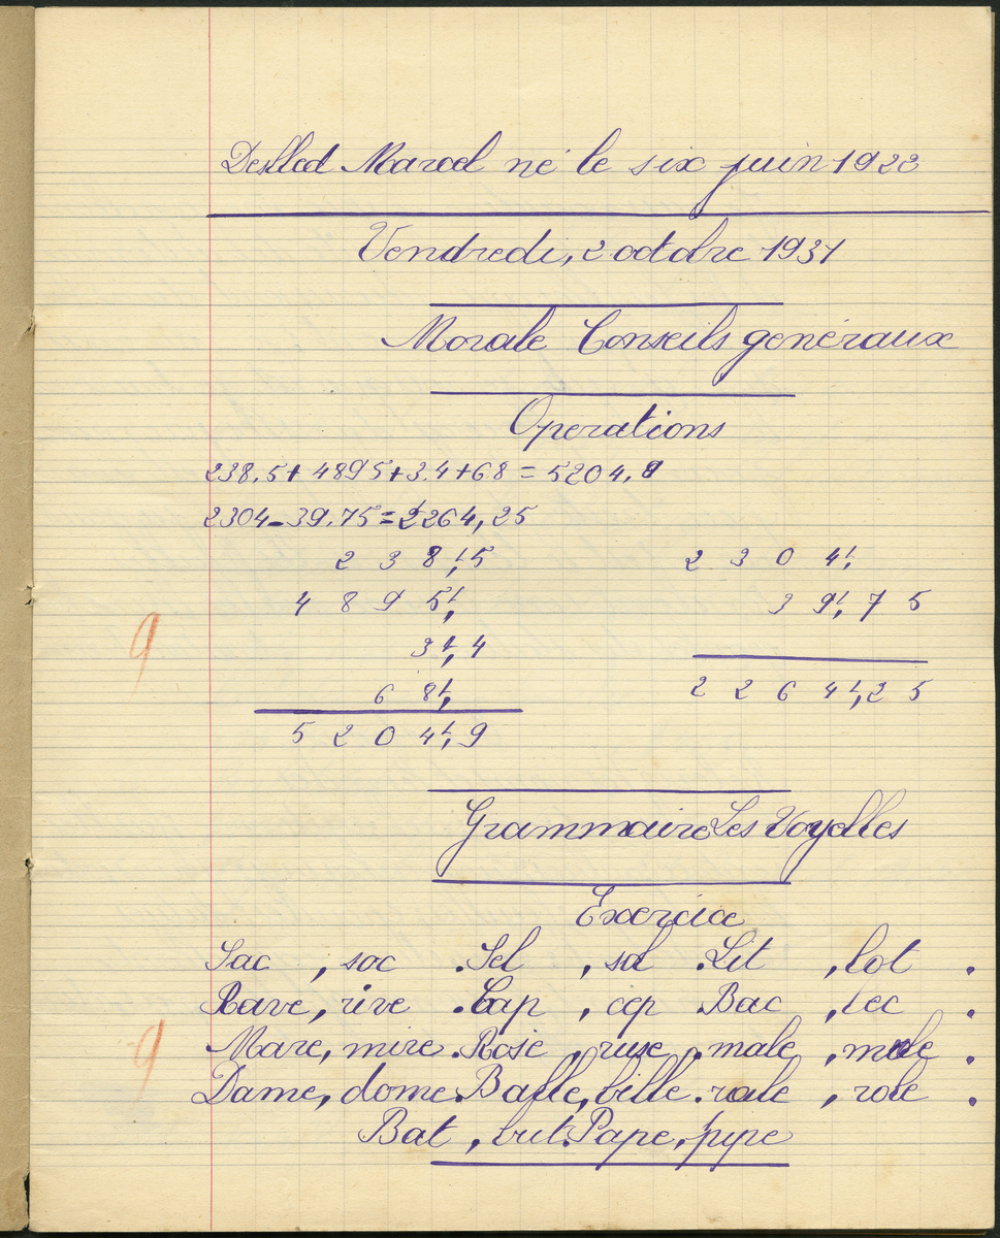 Marcel né le six juin 1922
Vendredi, 2 octobre 1931
Morale Conseils généraux
Operations
238,5 + 4895 + 3,4 + 68 = 5204,9
2304 - 39,75 = 2264,25
2 3 8,5
2 3 0 4,
4 8 9 5,
3 9,7 5
9
3,4
6 8,
2 2 6 4,2 5
5 2 0 4,9
Grammaire Les Voyelles
Exercice
Sac , soc . Sel , sol . Lit , lot .
Rave, rive . Cap , cep Bac , bec .
9
Mare, mire . Rose , ruse . male , mole .
Dame, dome. Balle, bille . rale , role .
Bat , but. Pape, pipe